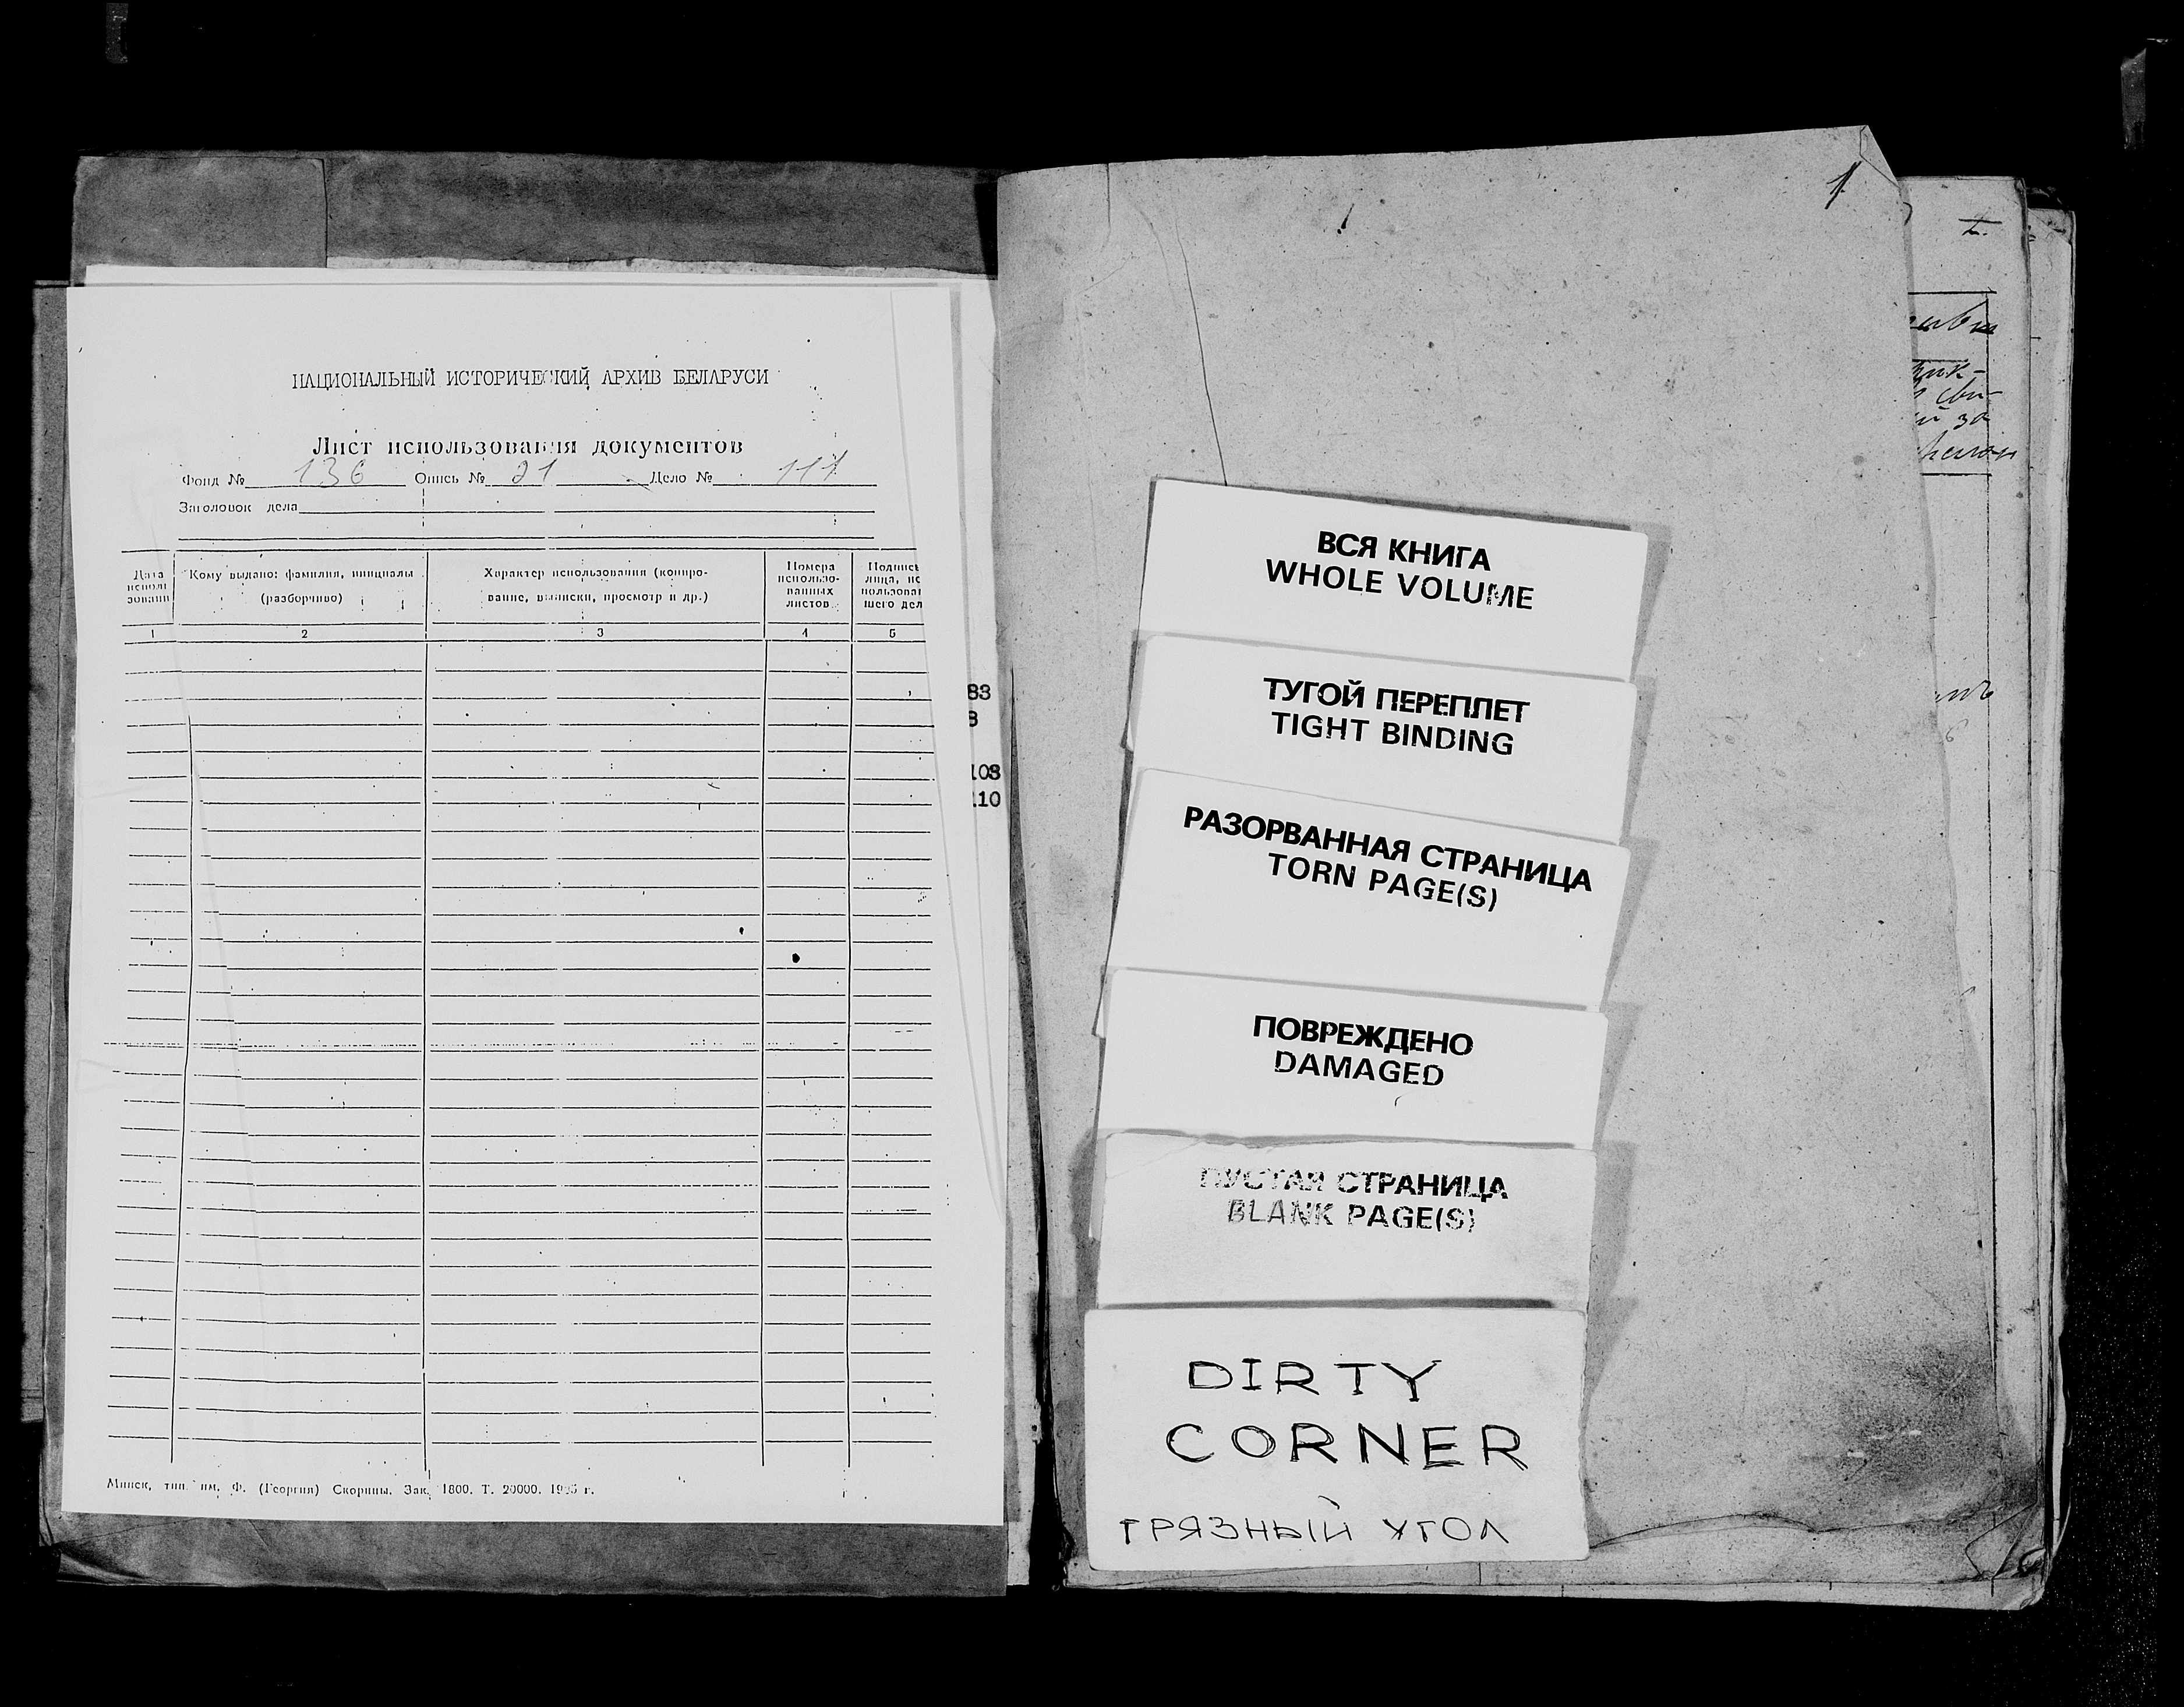 НАЦИОНАЛЬНЫЙ ИСТОРИЧЕСКИЙ АРХИВ БЕЛАРУСИ
Лист использования документов
Фонд № 136 Опись № 21 Дело № 111
Заголовок дела
Дата исполь зования
Кому выдано: фамилия, инициалы (разборчиво)
Характер использования (копиро-
вание, выписки, просмотр и др.)
Номера
использо-
ванных
листов
Подпись
лица, ис
пользовав
шего дел
1 2 3 4 5
83
8
108
110
Минск, тип. им. Ф. (Георгия) Скорины. Зак. 1800. Т. 20000. г.
1
ВСЯ КНИГА
WHOLE VOLUME
ТУГОЙ ПЕРЕПЛЕТ
TIGHT BINDING
РАЗОРВАННАЯ СТРАНИЦА
TORN PAGE(S)
ПОВРЕЖДЕНО
DAMAGED
ПУСТАЯ СТРАНИЦА
BLANK PAGE(S)
DIRTY
CORNER
ГРЯЗНЫЙ УГОЛ